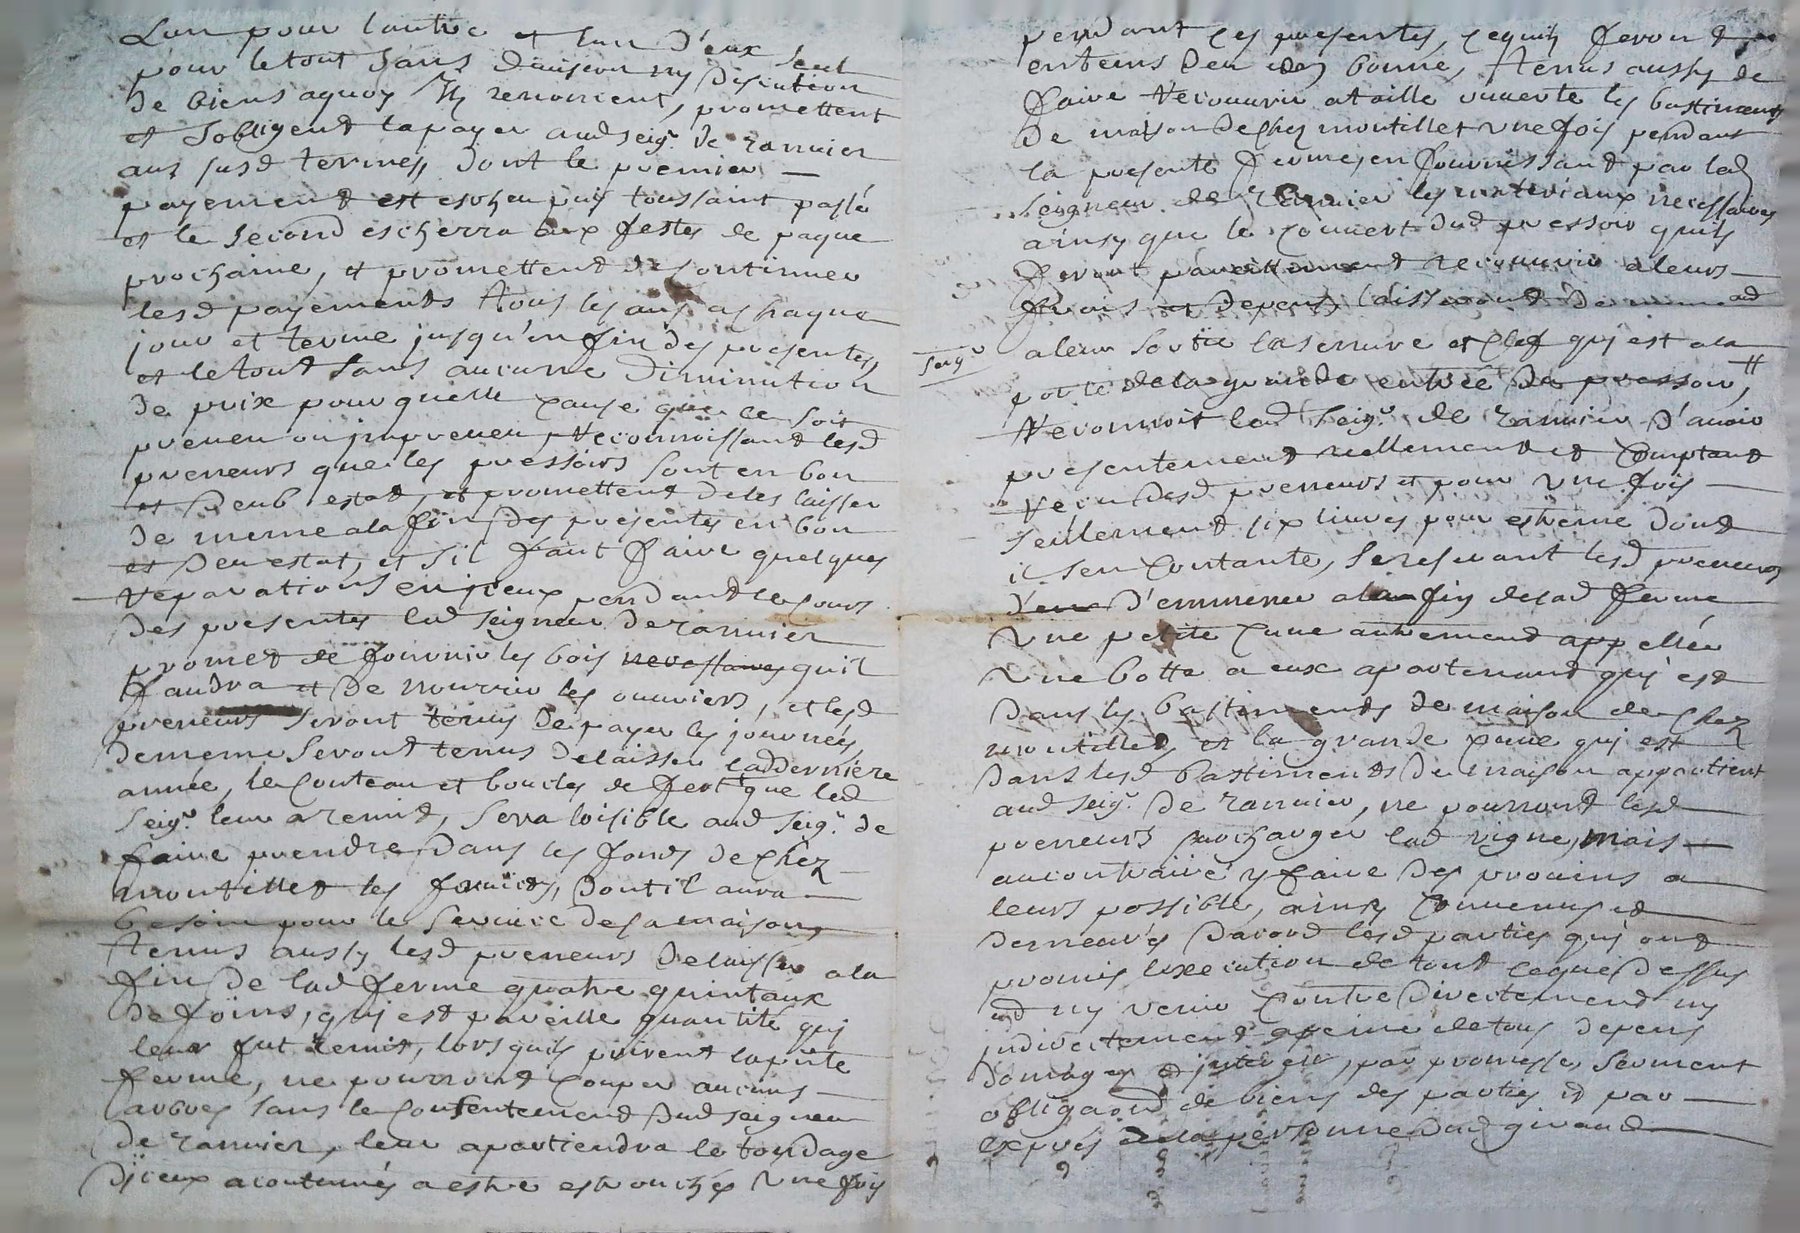 L'un pour l'autre et l'un d'eux seul
pour le tout sans division ny discution
de biens aquoy ils renoncent, promettent
et sobligent la payer aud seigr. de ranvier
aux susd termes, dont le premier
payement est escheu puis toussaint passé
et le second escherra aux festes de paque
prochaine, et promettent de continuer
lesd payements tous les ans achaque
jour et terme jusqu'en fin des presentes,
et le tout sans aucune diminution
de prix pour quelle cause que ce soit
preveu ou inpreveu, reconnoissant lesd
preneurs que les pressoirs sont en bon
et deub estat, et promettent de les laisser
de meme ala fin des presentes en bon
et deu estat, et s'il faut faire quelques
reparations en jceux pendant le cours
des presentes led seigneur de ranvier
promet de fournir les bois necessaires qu'il
faudra et de nourrir les ouvriers, et lesd
preneurs seront tenus de payer les journées,
dememe seront tenus delaisser lad derniere
année, le couteau et boucles de fert que led
seigr. leur a remit, sera loisible aud seigr. de
faire prendre dans les fonds de chez
montillet les fruits, dont il aura
besoin pour le service de sa maison,
tenus aussy lesd preneurs delaisser a la
fin de lad ferme quatre quintaux
de foins, qui est pareille quantité qui
leur fut remit, lors quils prirent la pnte
ferme, ne pourront couper aucuns
arbres sans le consentement dud seigneur
de ranvier, leur apartiendra le tondage
d'jceux acoutumés a estre estronchés une fois
pendant ces presentes, cequils feront
en tems deu et bonne, tenus aussy de
faire recouvrir a taille ouverte les bastiments
de maison de chez montillet une fois pendant
la presente ferme, en fournissant par led
seigneur de ranvier les materiaux necessaires
ainsy que le couvert dud pressoir quils
feront pareillement recouvrir a leurs
frais et depens, laisseront de meme aud
seigr
a leur sortie la serrure et clef qui est a la
porte de la grande entrée de pressoir, #
Reconnoit led seigr. de ranvier d'avoir
presentement reellement et comptant
receu desd preneurs et pour une fois
seulement six livres pour estreine dont
il s'en contante, se reservant lesd preneurs
d'emmener ala fin delad ferme
une petite cuve autrement appellée
une botte a eux apartenant qui est
dans les bastiments de maison de chez
montillet, et la grande cuve qui est
dans lesd bastiments de maison appartient
aud seigr. de ranvier, ne pourront lesd
preneurs surcharger lad vigne, mais
aucontraire y faire des provins a
leurs possible, ainsy convenus et
demeurés dacord lesd parties qui ont
promis l'execution de tout ceque dessus
et ny venir contre directement ny
indirectement a peine de tous depens
domages et interests, par promesse, serment
obligaon de biens des parties et par
exprés de la personne dud giraud